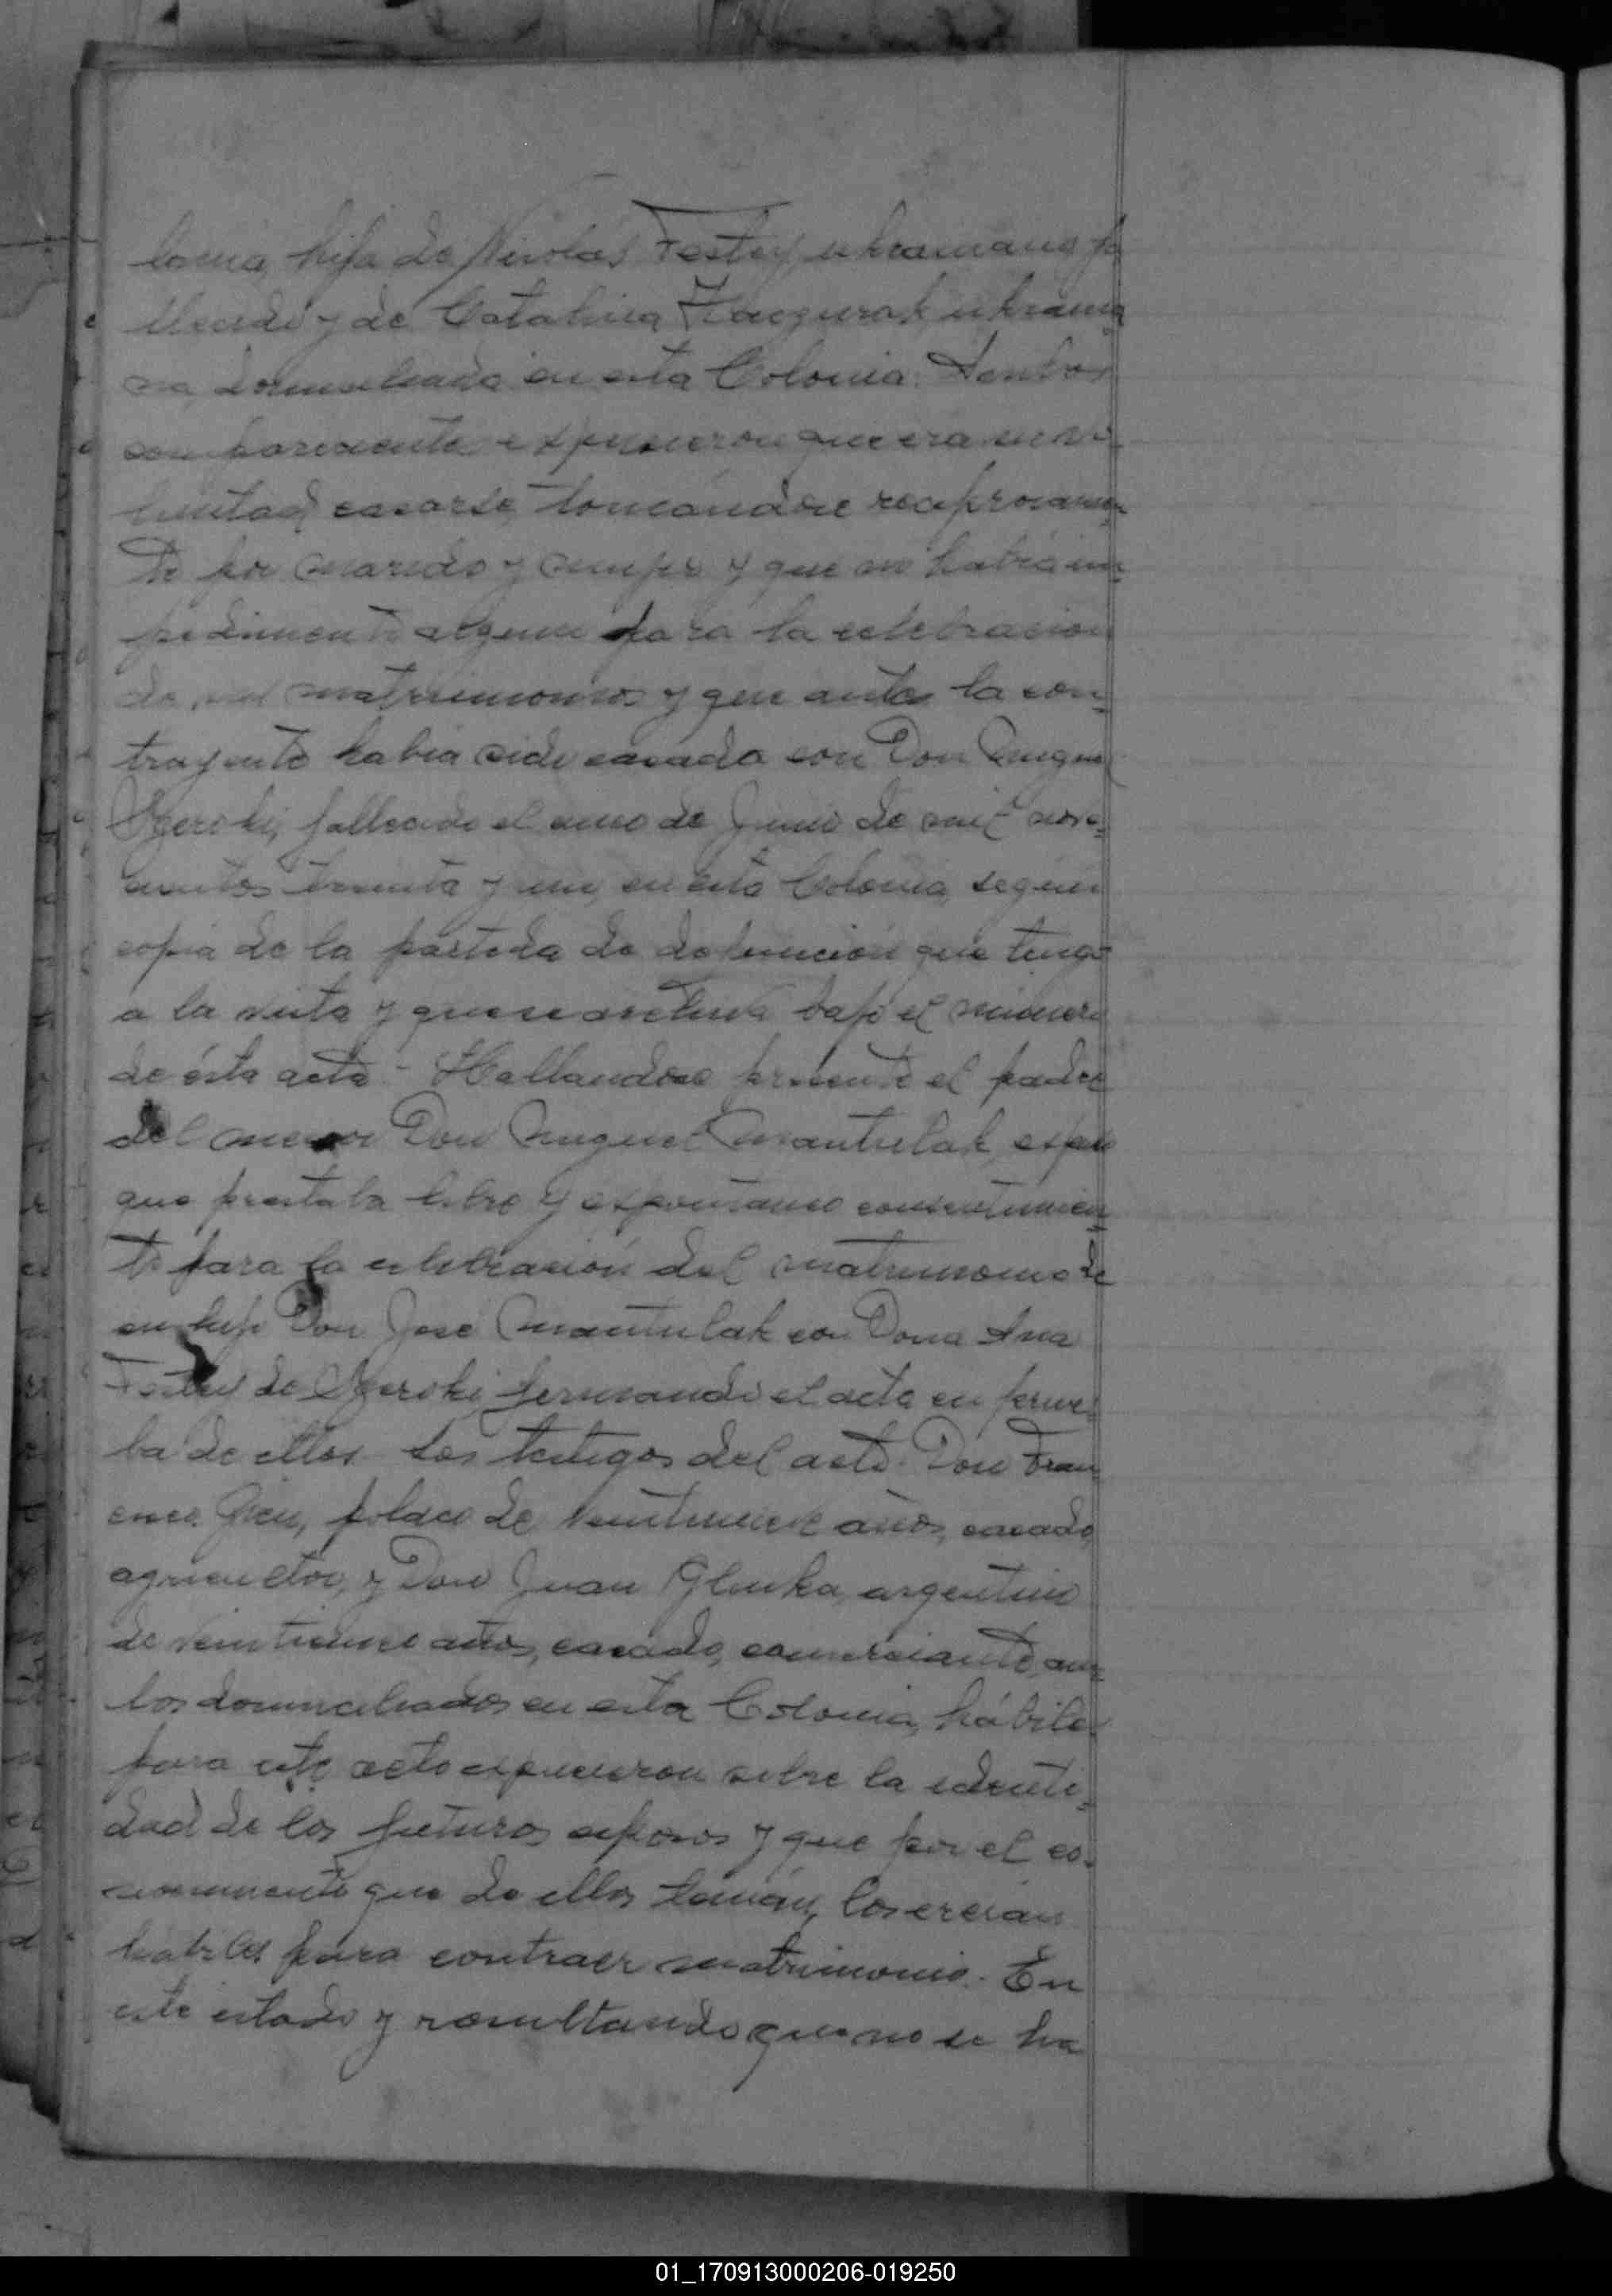 lonia, hija de Nicolás Festey, ukraniano, fa
llecido y de Catalina ukrania
na, domiciliada en esta Colonia. Ambos
comparecientes expusieron que era su vo
luntad casarse, tomándose recíprocamen
te por marido y mujer y que no había im
pedimento alguno para la celebración
de su matrimonio y que antes la con
trayente había sido casada con Don Miguel
fallecido el once de Junio de mil nove
cientos treinta y uno, en esta Colonia, según
copia de la partida de defunción que tengo
a la vista y que se archiva bajo el número
de ésta acta - Hallandose presente el padre
del menor Don Miguel Mantulak, expuso
que prestaba libre y espontaneo consentimien
to para la celebración del matrimonio de
su hijo Don José Mantulak con Dona Ana
Festey de firmando el acta en prue
ba de ellos. Los testigos del acto. Don Fran
cisco polaco de veintinueve años, casado,
agricultor, y Don Juan Glinka, argentino
de años, casado, comerciante, am
bos domiciliados en esta Colonia, hábiles
para este acto expusieron sobre la identi
dad de los futuros esposos y que por el co
nocimiento que de ellos tenían, los creian
habiles para contraer matrimonio. En
este estado y resultando que no se ha
01_170913000206-019250